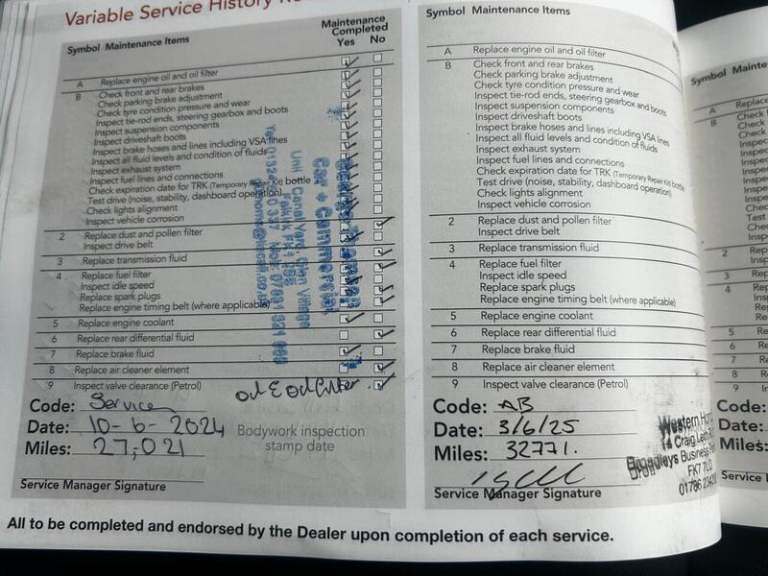 Variable Service History
Maintenance
Completed
Symbol Maintenance Items Yes No
A Replace engine oil and oil filter
B Check front and rear brakes
Check parking brake adjustment
Check tyre condition pressure and wear
Inspect tie-rod ends, steering gearbox and boots
Inspect suspension components
Inspect driveshaft boots
Inspect brake hoses and lines including VSA lines
Inspect all fluid levels and condition of fluids
Inspect exhaust system
Inspect fuel lines and connections
Check expiration date for TRK (Temporary Repair Kit bottle
Test drive (noise, stability, dashboard operation)
Check lights alignment
Inspect vehicle corrosion
2 Replace dust and pollen filter
Inspect drive belt
3 Replace transmission fluid
4 Replace fuel filter
Inspect idle speed
Replace spark plugs
Replace engine timing belt (where applicable)
5 Replace engine coolant
6 Replace rear differential fluid
7 Replace brake fluid
8 Replace air cleaner element
9 Inspect valve clearance (Petrol)
Oil & Oil Filter
Code: Service
Date: 10-6-2024
Miles: 27,021
Bodywork inspection
stamp date
Service Manager Signature
Car & Commercial
Symbol Maintenance Items
A Replace engine oil and oil filter
B Check front and rear brakes
Check parking brake adjustment
Check tyre condition pressure and wear
Inspect tie-rod ends, steering gearbox and boots
Inspect suspension components
Inspect driveshaft boots
Inspect brake hoses and lines including VSA lines
Inspect all fluid levels and condition of fluids
Inspect exhaust system
Inspect fuel lines and connections
Check expiration date for TRK (Temporary Repair Kit bottle
Test drive (noise, stability, dashboard operation)
Check lights alignment
Inspect vehicle corrosion
2 Replace dust and pollen filter
Inspect drive belt
3 Replace transmission fluid
4 Replace fuel filter
Inspect idle speed
Replace spark plugs
Replace engine timing belt (where applicable)
5 Replace engine coolant
6 Replace rear differential fluid
7 Replace brake fluid
8 Replace air cleaner element
9 Inspect valve clearance (Petrol)
Code: AB
Date: 3/6/25
Miles: 32771.
Western
Craig
Business
FK7 7LQ
01786
Service Manager Signature
Symbol
A
B
2
3
4
5
6
7
8
9
Code:
Date:
Miles:
Service
All to be completed and endorsed by the Dealer upon completion of each service.